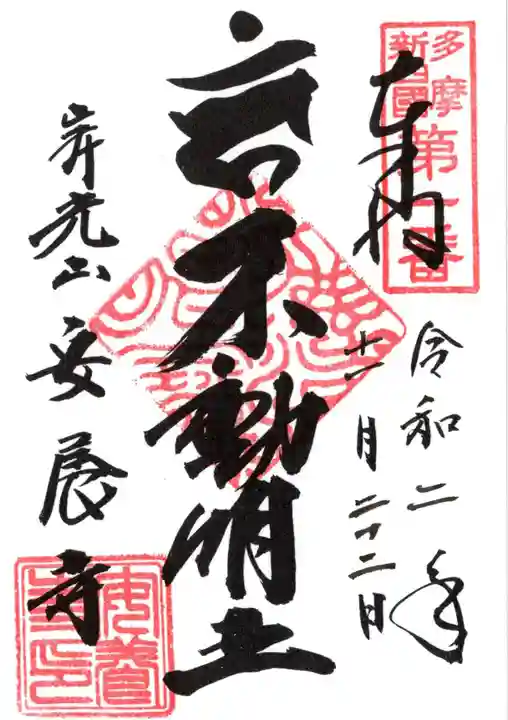 多摩
新四國
第一番
奉拝
令和二年
十一月二十二日
不動明王
神光山安養寺
安養
寺印